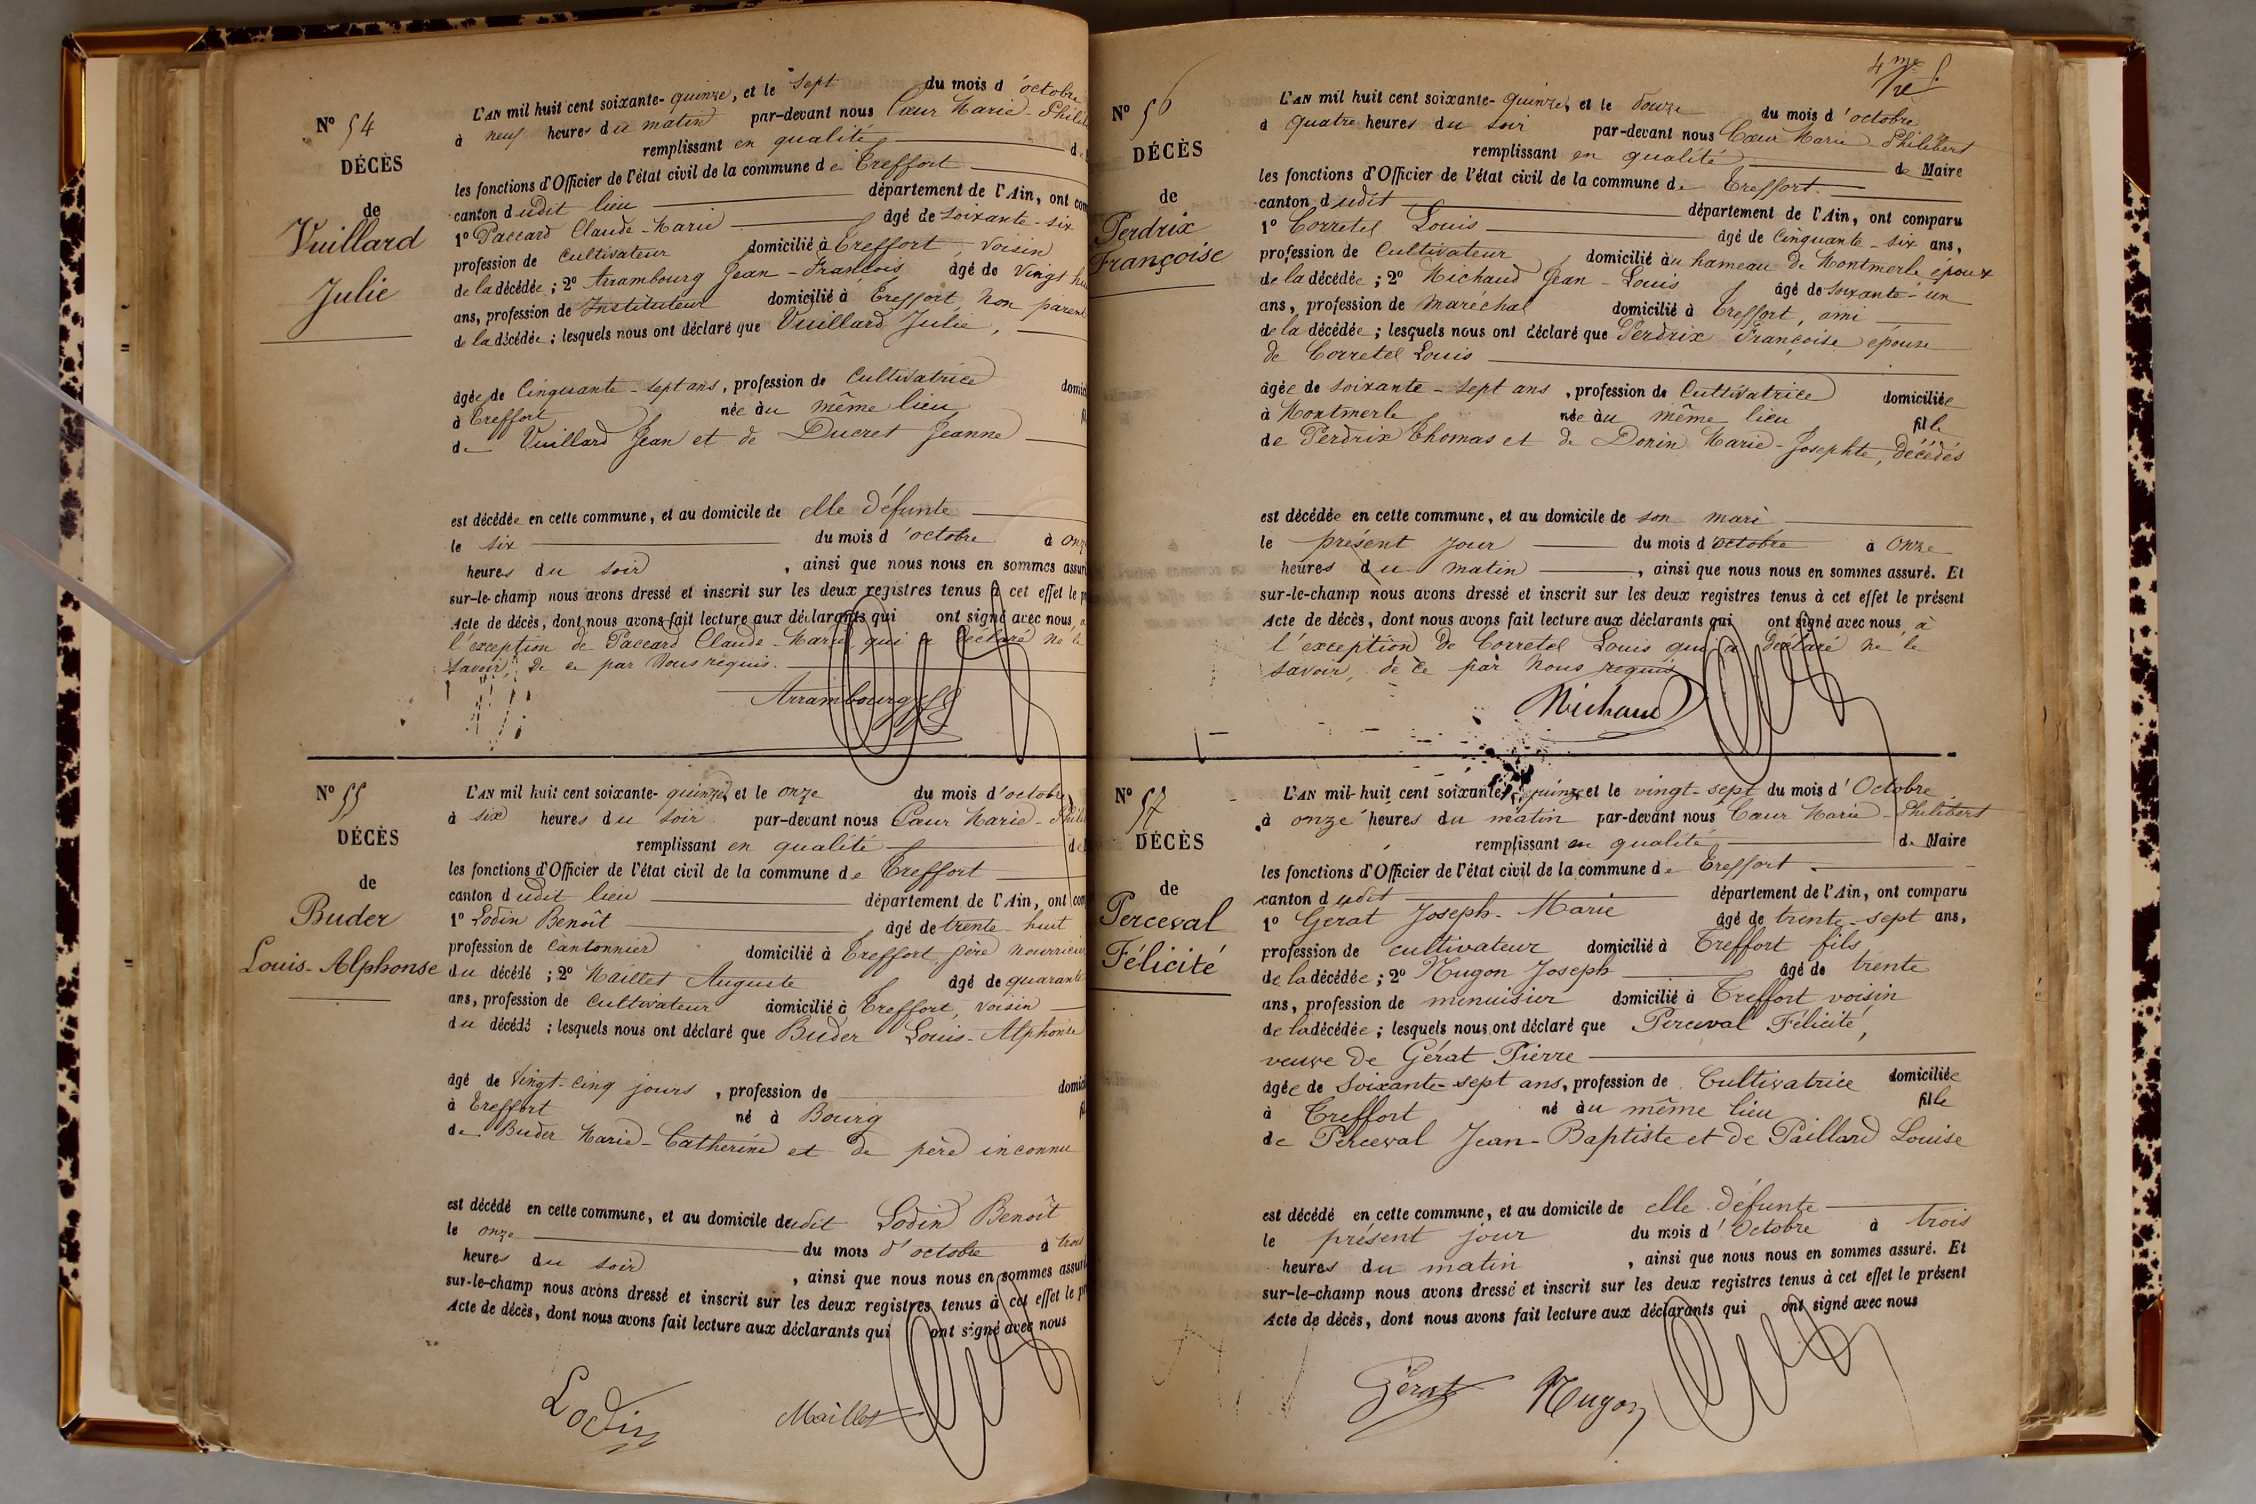 Nº 54
DÉCÈS
de
Vuillard
Julie
L'AN mil huit cent soixante-quinze, et le sept du mois d'octobre
à neuf heures du matin par-devant nous Cœur Marie-
remplissant en qualité
les fonctions d'Officier de l'état civil de la commune de Treffort
canton dudit lieu département de l'Ain, ont
1º Paccard Claude-Marie âgé de soixante-six
profession de cultivateur domicilié à Treffort voisin
de la décédée; 2º Arrambourg Jean-François âgé de vingt
ans, profession de Instituteur domicilié à Treffort non parent
de la décédée; lesquels nous ont déclaré que Vuillard Julie,
âgée de Cinquante-sept ans, profession de Cultivatrice
à Treffort née au même lieu
de Vuillard Jean et de Ducret Jeanne
est décédée en cette commune, et au domicile de elle défunte
le six du mois d'octobre à onze
heures du soir, ainsi que nous nous en sommes assuré
sur-le-champ nous avons dressé et inscrit sur les deux registres tenus à cet effet le
Acte de décès, dont nous avons fait lecture aux déclarants qui ont signé avec nous, à
l'exception de Paccard Claude-Marie qui a déclaré ne le
savoir, de ce par Nous requis.
Arrambourg
Nº 55
DÉCÈS
de
Buder
Louis-Alphonse
L'AN mil huit cent soixante-quinze, et le onze du mois d'octobre
à six heures du soir par-devant nous Cœur Marie-
remplissant en qualité
les fonctions d'Officier de l'état civil de la commune de Treffort
canton dudit lieu département de l'Ain, ont
1º Lodin Benoît âgé de trente-huit
profession de cantonnier domicilié à Treffort, père nourricier
du décédé; 2º Maillet Auguste âgé de quarante
ans, profession de cultivateur domicilié à Treffort, voisin
du décédé; lesquels nous ont déclaré que Buder Louis-Alphonse
âgé de Vingt-cinq jours, profession de
à Treffort né à Bourg
de Buder Marie-Catherine et de père inconnu
est décédé en cette commune, et au domicile dudit Lodin Benoît
le onze du mois d'octobre à trois
heures du soir, ainsi que nous nous en sommes assuré
sur-le-champ nous avons dressé et inscrit sur les deux registres tenus à cet effet le
Acte de décès, dont nous avons fait lecture aux déclarants qui ont signé avec nous
Lodin Maillet
4me
Nº 56
DÉCÈS
de
Perdrix
Françoise
L'AN mil huit cent soixante-quinze, et le Douze du mois d'octobre
à quatre heures du soir par-devant nous Cœur Marie-Philibert
remplissant en qualité de Maire
les fonctions d'Officier de l'état civil de la commune de Treffort.
canton dudit département de l'Ain, ont comparu
1º Corretel Louis âgé de Cinquante-six ans,
profession de Cultivateur, domicilié au hameau de Montmerle époux
de la décédée; 2º Michaud Jean-Louis âgé de soixante-un
ans, profession de maréchal domicilié à Treffort, ami
de la décédée; lesquels nous ont déclaré que Perdrix Françoise épouse
de Corretel Louis
âgée de soixante-sept ans, profession de Cultivatrice domiciliée
à Montmerle née au même lieu fille
de Perdrix Thomas et de Donin Marie-Josephte, décédés
est décédée en cette commune, et au domicile de son mari
le présent jour du mois d'octobre à onze
heures du matin, ainsi que nous nous en sommes assuré. Et
sur-le-champ nous avons dressé et inscrit sur les deux registres tenus à cet effet le présent
Acte de décès, dont nous avons fait lecture aux déclarants qui ont signé avec nous à
l'exception de Corretel Louis qui a déclaré ne le
savoir, de ce par Nous requis
Michaud
Nº 57
DÉCÈS
de
Perceval
Félicité
L'AN mil huit cent soixante-quinze et le vingt-sept du mois d'Octobre
à onze heures du matin par-devant nous Cœur Marie-Philibert
remplissant en qualité de Maire
les fonctions d'Officier de l'état civil de la commune de Treffort
canton dudit département de l'Ain, ont comparu
1º Gerat Joseph-Marie âgé de trente-sept ans,
profession de cultivateur domicilié à Treffort fils
de la décédée; 2º Nugon Joseph âgé de trente
ans, profession de menuisier domicilié à Treffort voisin
de la décédée; lesquels nous ont déclaré que Perceval Félicité,
veuve de Gérat Pierre
âgée de Soixante-sept ans, profession de Cultivatrice domiciliée
à Treffort né au même lieu fille
de Perceval Jean-Baptiste et de Paillard Louise
est décédé en cette commune, et au domicile de elle défunte
le présent jour du mois d'Octobre à trois
heures du matin, ainsi que nous nous en sommes assuré. Et
sur-le-champ nous avons dressé et inscrit sur les deux registres tenus à cet effet le présent
Acte de décès, dont nous avons fait lecture aux déclarants qui ont signé avec nous
Gerat Nugon